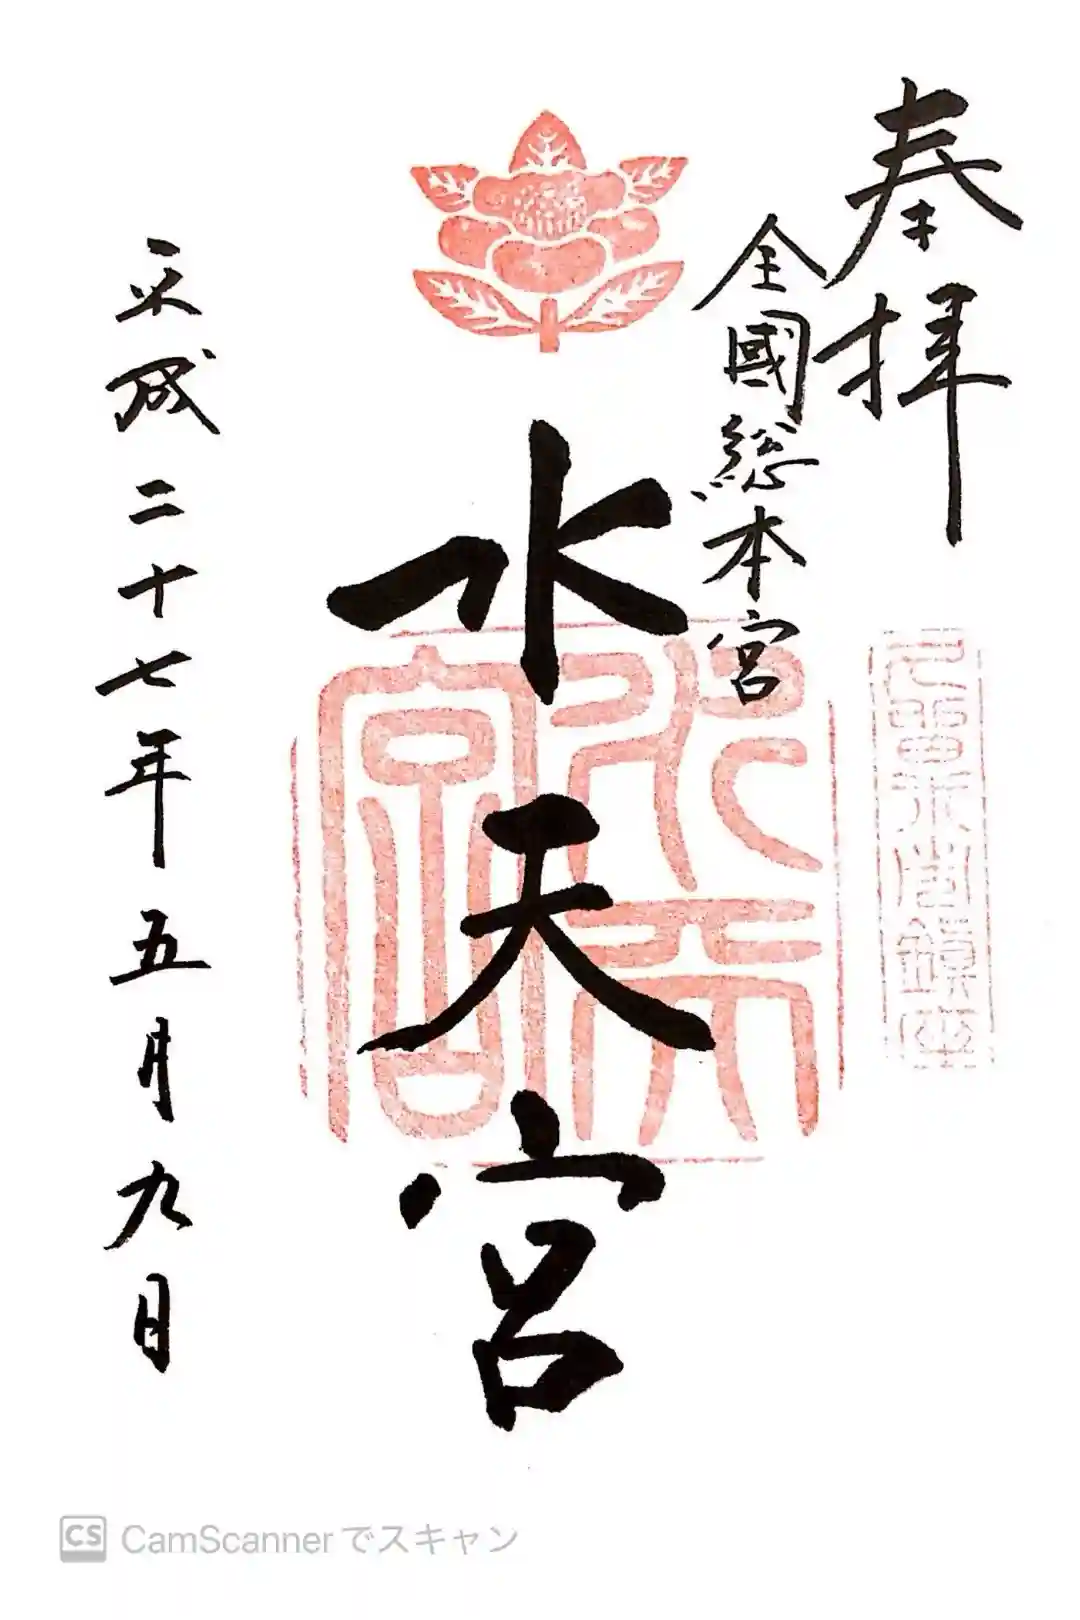 奉拝
全國総本宮
水天宮
水天宮
平成二十七年五月九日
CS CamScannerでスキャン